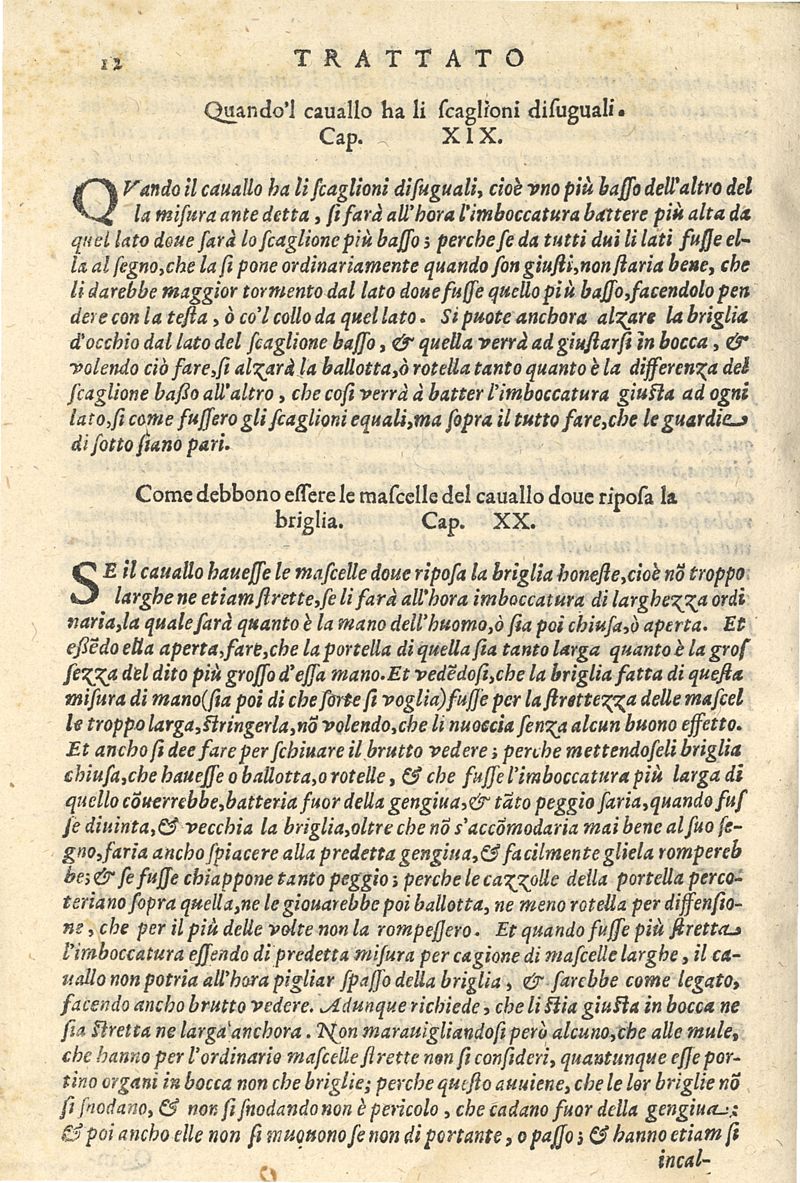 12 TRATTATO
Quando'l cauallo ha li ſcaglioni diſuguali.
Cap. XIX.
QVando il cauallo ha li ſcaglioni diſuguali, cioè vno più baſſo dell'altro del
la miſura ante detta, ſi farà all'hora l'imboccatura battere più alta da
quel lato doue ſarà lo ſcaglione più baſſo; perche ſe da tutti dui li lati fuſſe el-
la al ſegno, che la ſi pone ordinariamente quando ſon giuſti, non ſtaria bene, che
li darebbe maggior tormento dal lato doue fuſſe quello più baſſo, facendolo pen
dere con la teſta, ò co'l collo da quel lato. Si puote anchora alzare la briglia
d'occhio dal lato del ſcaglione baſſo, & quella verrà ad giuſtarſi in bocca, &
volendo ciò fare, ſi alzarà la ballotta, ò rotella tanto quanto è la differenza del
ſcaglione baßo all'altro, che coſi verrà à batter l'imboccatura giuſta ad ogni
lato, ſi come fuſſero gli ſcaglioni equali, ma ſopra il tutto fare, che le guardie
di ſotto ſiano pari.
Come debbono eſſere le maſcelle del cauallo doue ripoſa la
briglia. Cap. XX.
SE il cauallo haueſſe le maſcelle doue ripoſa la briglia honeſte, cioè nõ troppo
larghe ne etiam ſtrette, ſe li farà all'hora imboccatura di larghezza ordi
naria, la quale ſarà quanto è la mano dell'huomo, ò ſia poi chiuſa, ò aperta. Et
eßẽdo ella aperta, fare, che la portella di quella ſia tanto larga quanto è la groſ
ſezza del dito più groſſo d'eſſa mano. Et vedẽdoſi, che la briglia fatta di queſta
miſura di mano (ſia poi di che ſorte ſi voglia) fuſſe per la ſtrettezza delle maſcel
le troppo larga, ſtringerla, nõ volendo, che li nuoccia ſenza alcun buono effetto.
Et ancho ſi dee fare per ſchiuare il brutto vedere; perche mettendoſeli briglia
chiuſa, che haueſſe o ballotta, o rotelle, & che fuſſe l'imboccatura più larga di
quello cõuerrebbe, batteria fuor della gengiua, & tãto peggio ſaria, quando fuſ
ſe diuinta, & vecchia la briglia, oltre che nõ s'accõmodaria mai bene al ſuo ſe-
gno, faria ancho ſpiacere alla predetta gengiua, & facilmente gliela rompereb
be; & ſe fuſſe chiappone tanto peggio; perche le cazzolle della portella perco-
teriano ſopra quella, ne le giouarebbe poi ballotta, ne meno rotella per diffenſio-
ne, che per il più delle volte non la rompeſſero. Et quando fuſſe più ſtretta
l'imboccatura eſſendo di predetta miſura per cagione di maſcelle larghe, il ca-
uallo non potria all'hora pigliar ſpaſſo della briglia, & ſarebbe come legato,
facendo ancho brutto vedere. Adunque richiede, che li ſtia giuſta in bocca ne
ſia ſtretta ne larga anchora. Non marauigliandoſi però alcuno, che alle mule,
che hanno per l'ordinario maſcelle ſtrette non ſi conſideri, quantunque eſſe por-
tino organi in bocca non che briglie; perche queſto auuiene, che le lor briglie nõ
ſi ſnodano, & non ſi ſnodando non è pericolo, che cadano fuor della gengiua:
& poi ancho elle non ſi muouono ſe non di portante, o paſſo; & hanno etiam ſi
incal-